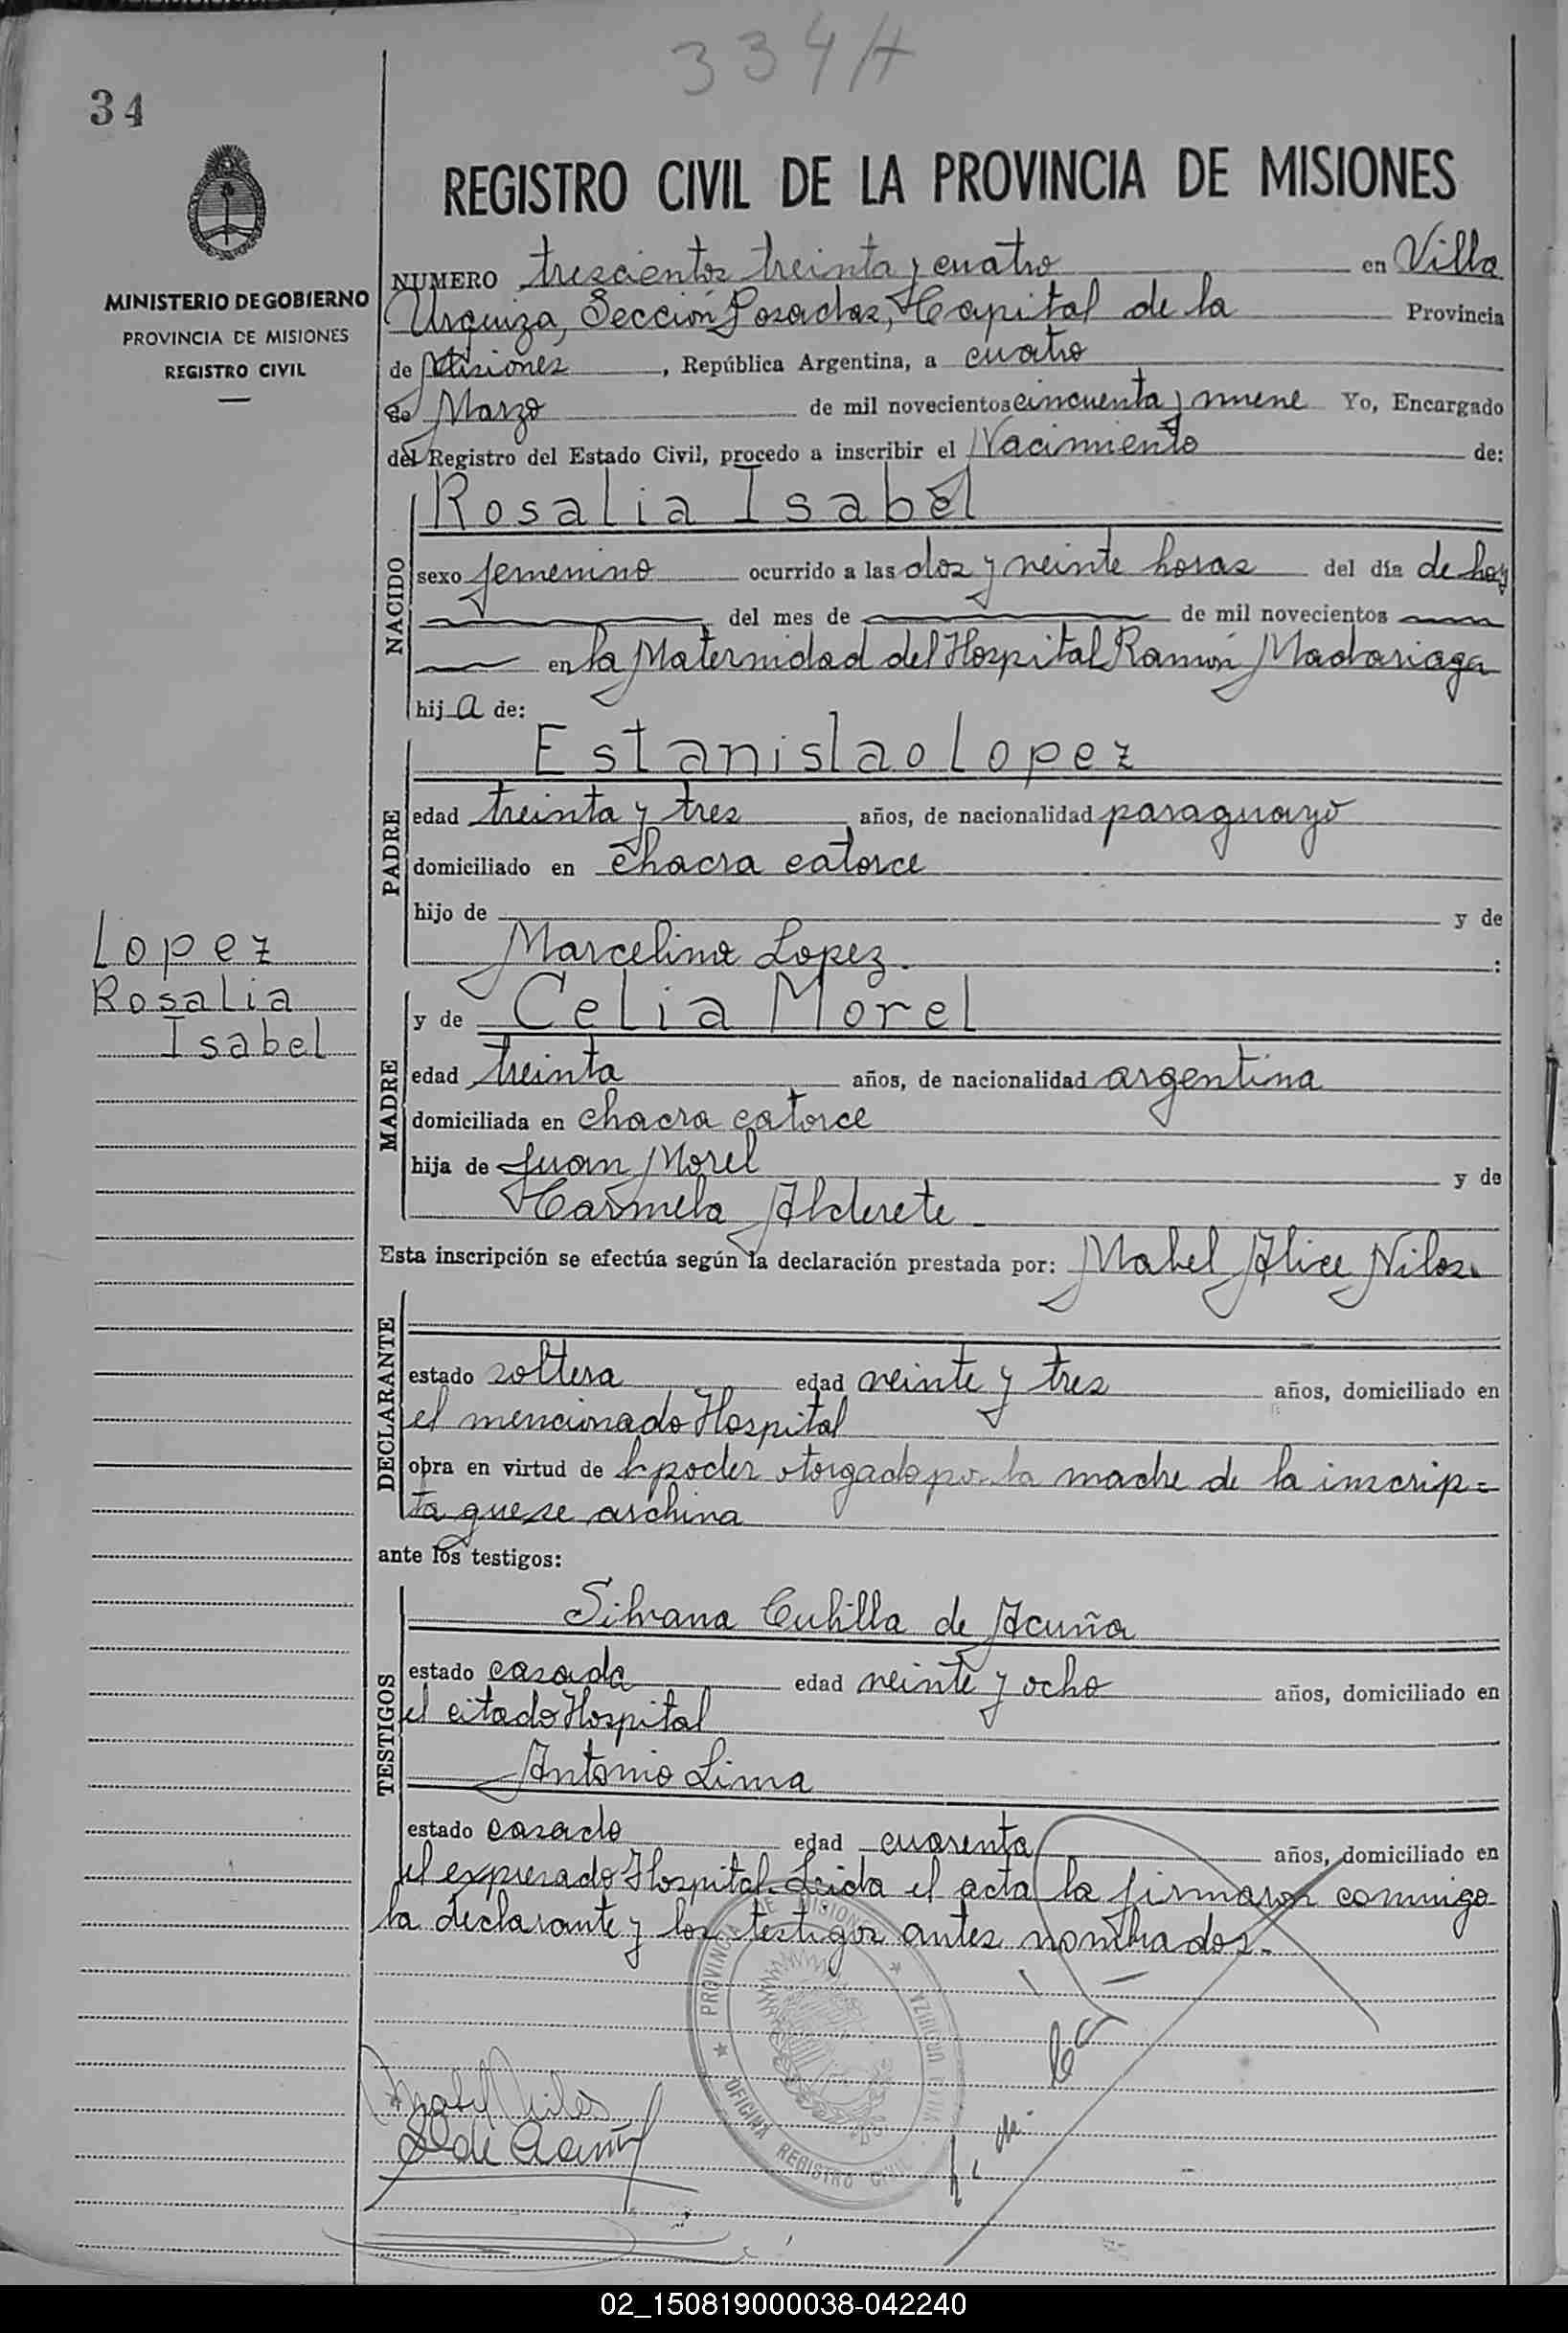 334H
34
REGISTRO CIVIL DE LA PROVINCIA DE MISIONES
MINISTERIO DE GOBIERNO
PROVINCIA DE MISIONES
REGISTRO CIVIL
NUMERO trescientos treinta y cuatro en Villa
Urquiza, Sección Posadas, Capital de la Provincia
de Misiones, República Argentina, a cuatro
de Marzo de mil novecientos cincuenta y nueve Yo, Encargado
del Registro del Estado Civil, procedo a inscribir el Nacimiento de:
NACIDO
Rosalia Isabel
sexo femenino ocurrido a las dos y veinte horas del día de hoy
del mes de de mil novecientos
en la Maternidad del Hospital Ramón Madariaga
hija de:
PADRE
Estanislao Lopez
edad treinta y tres años, de nacionalidad paraguayo
domiciliado en chacra catorce
hijo de y de
Marcelina Lopez.
Lopez
Rosalia
Isabel
MADRE
y de Celia Morel
edad treinta años, de nacionalidad argentina
domiciliada en chacra catorce
hija de Juan Morel y de
Carmela Alderete
Esta inscripción se efectúa según la declaración prestada por: Mabel Alice Niloz
DECLARANTE
estado soltera edad veinte y tres años, domiciliado en
el mencionado Hospital
obra en virtud de poder otorgado por la madre de la inscrip=
ta que se archiva
ante los testigos:
TESTIGOS
Silvana Cubilla de Acuña
estado casada edad veinte y ocho años, domiciliado en
el citado Hospital
Antonio Lima
estado casado edad cuarenta años, domiciliado en
el expresado Hospital. Leida el acta la firmaron conmigo
la declarante y los testigos antes nombrados.-
PROVINCIA DE MISIONES
OFICINA REGISTRO CIVIL
VILLA URQUIZA
S de Acuña
02_150819000038-042240